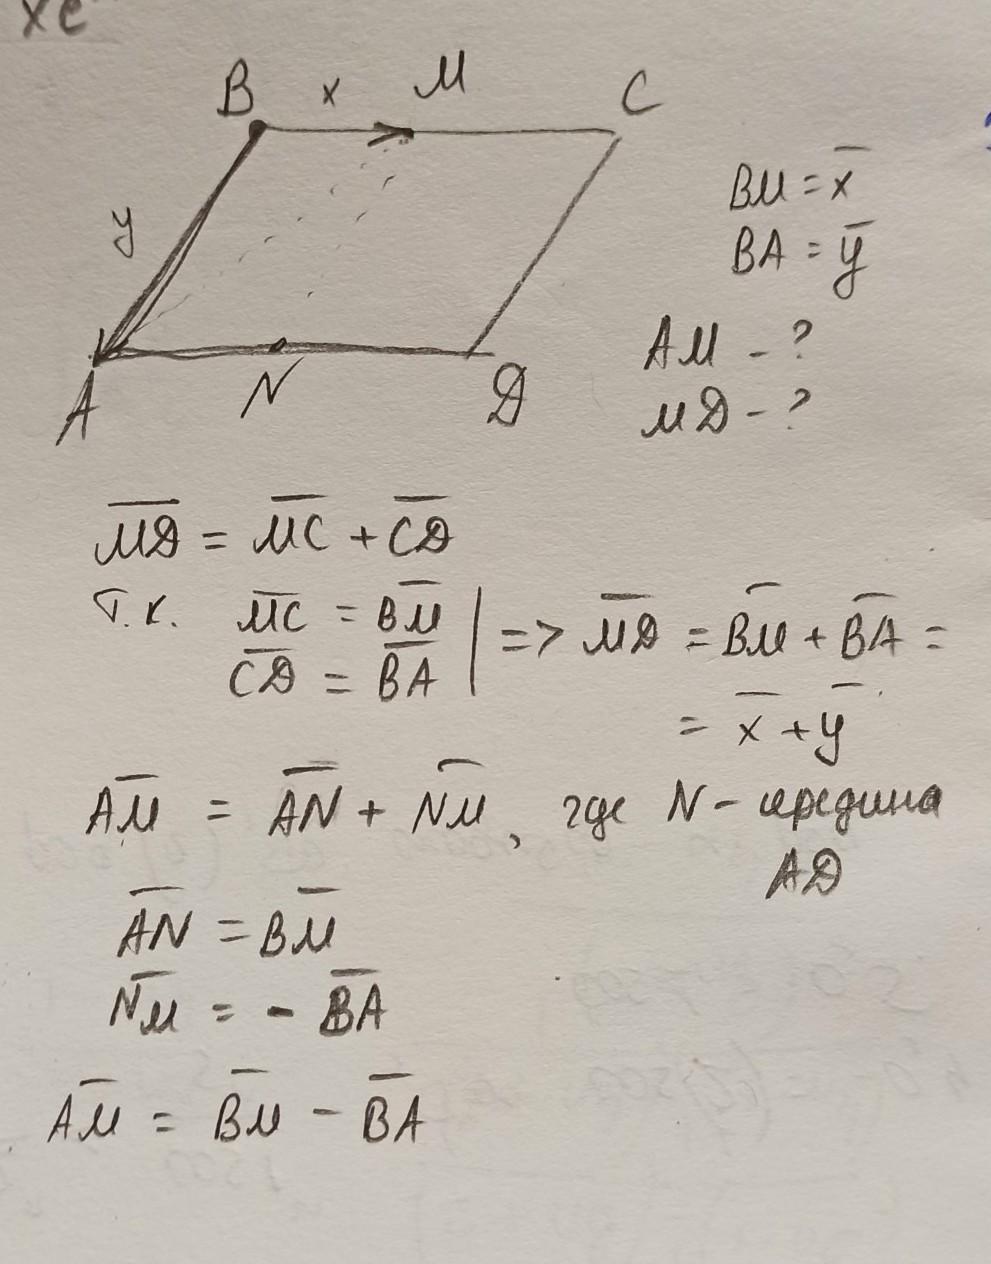 xe
B x M C
y
A N D
BM = x̅
BA = y̅
AM - ?
MD - ?
M̅D̅ = M̅C̅ + C̅D̅
Т.к. M̅C̅ = B̅M̅ | => M̅D̅ = B̅M̅ + B̅A̅ =
C̅D̅ = B̅A̅
= x̅ + y̅
A̅M̅ = A̅N̅ + N̅M̅, где N - середина
AD
A̅N̅ = B̅M̅
N̅M̅ = - B̅A̅
A̅M̅ = B̅M̅ - B̅A̅